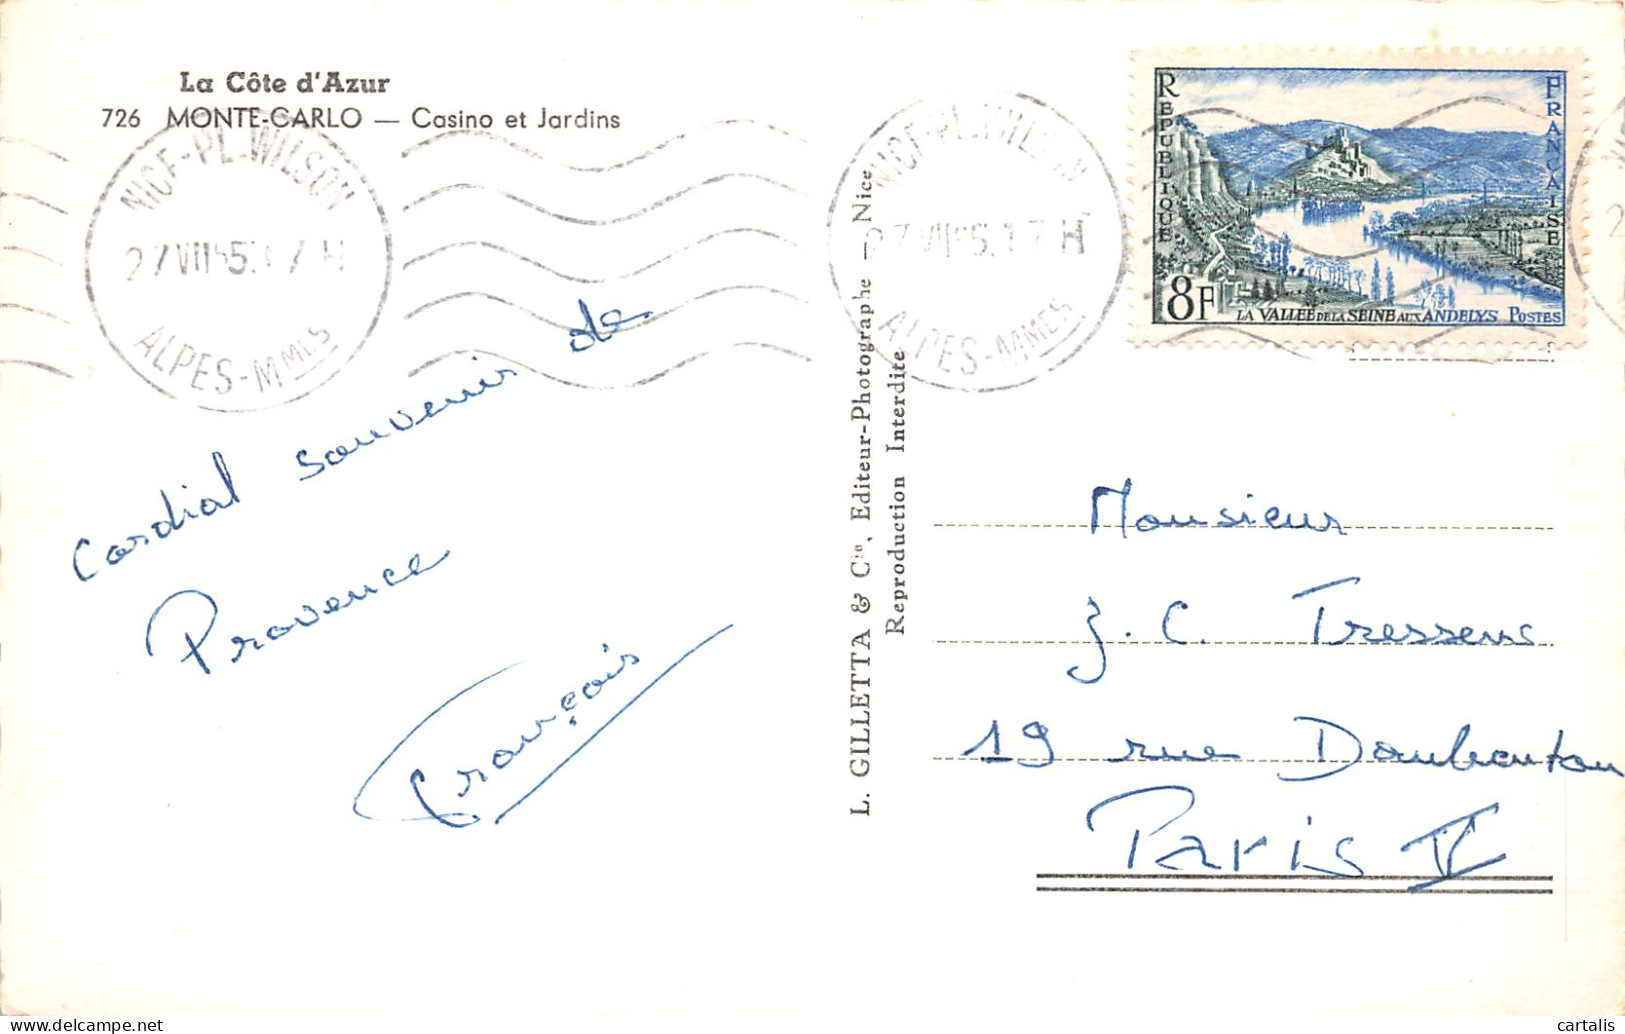 La Côte d'Azur
726 MONTE-CARLO — Casino et Jardins
NICE-PL. WILSON
ALPES-MMES
Cordial souvenir de
Provence
François
L. GILLETTA & Cie, Editeur-Photographe — Nice
Reproduction Interdite
NICE-PL. WILSON
ALPES-MMES
REPUBLIQUE
FRANCAISE
8F
LA VALLEE DE LA SEINE AUX ANDELYS POSTES
Monsieur
J. C. Tressens
19 rue Daubenton
PARIS V
cartalis
www.delcampe.net